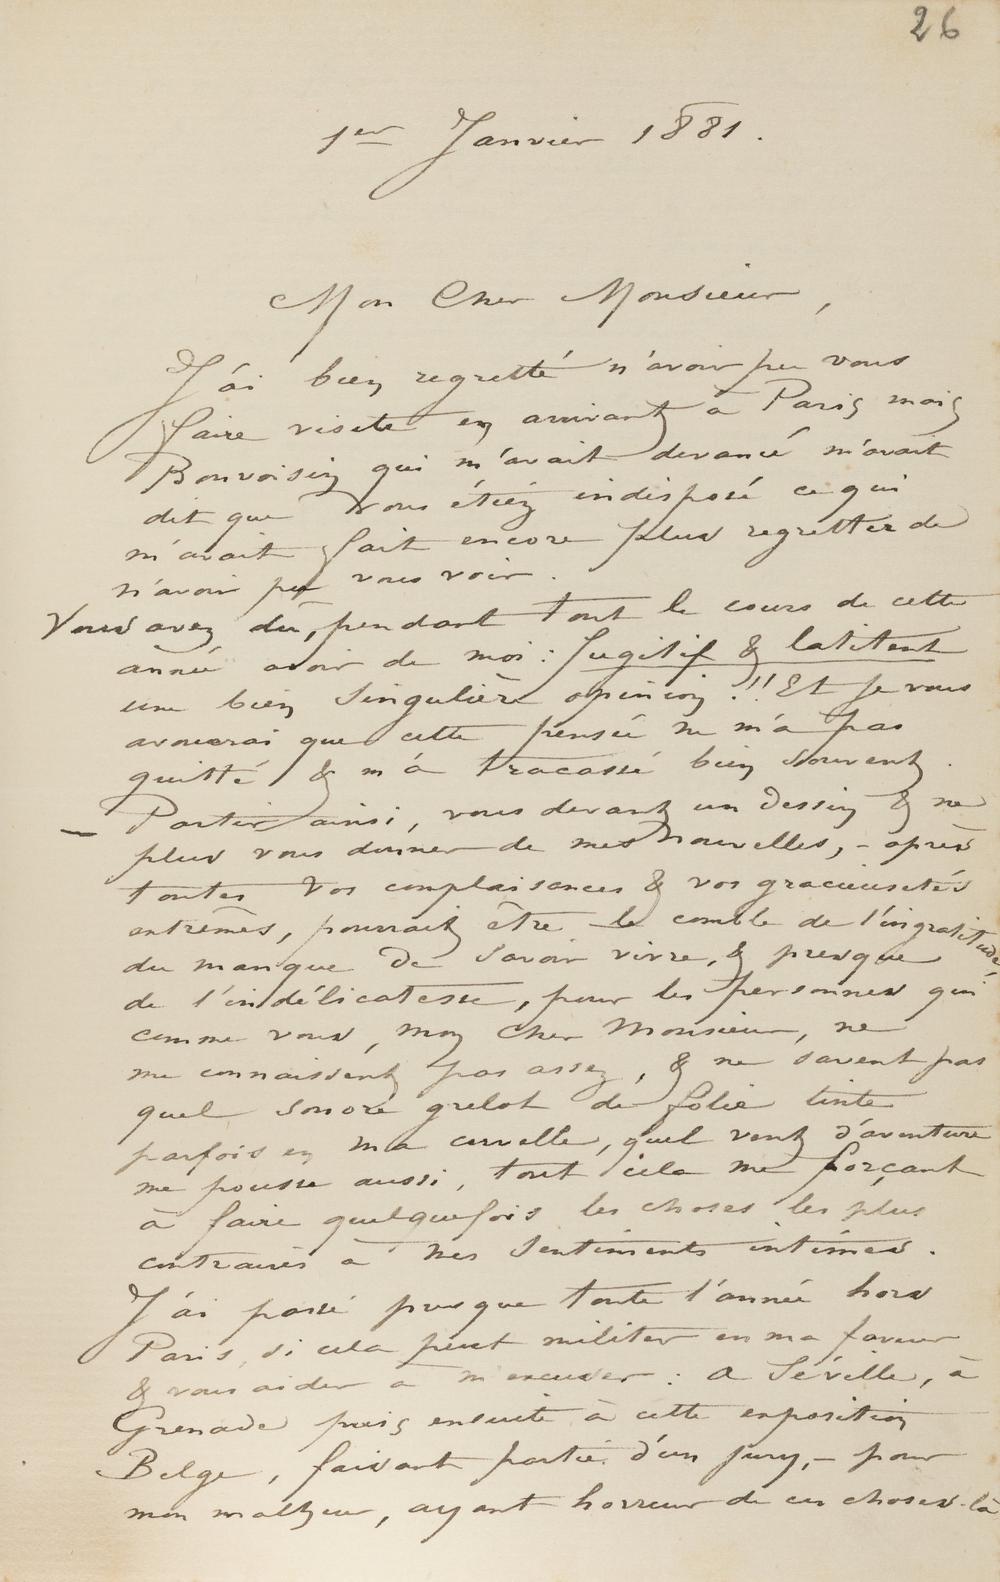 26
1er Janvier 1881.
Mon Cher Monsieur,
J'ai bien regretté n'avoir pu vous
faire visite en arrivant à Paris mais
Bonvoisin qui m'avait devancé m'avait
dit que vous étiez indisposé ce qui
m'avait fait encore plus regretter de
n'avoir pu vous voir.
Vous avez dû, pendant tout le cours de cette
année avoir de moi : fugitif & latitent
une bien singulière opinion !!! Et je vous
avouerai que cette pensée ne m'a pas
quitté & m'a tracassé bien souvent.
— Partir ainsi, vous devant un dessin & ne
plus vous donner de mes nouvelles, - après
toutes vos complaisances & vos gracieusetés
extrêmes, pourrait être le comble de l'ingratitude,
du manque de savoir vivre, & presque
de l'indélicatesse, pour les personnes qui
comme vous, mon Cher Monsieur, ne
me connaissent pas assez, & ne savent pas
quel sonore grelot de folie tinte
parfois en ma cervelle, quel vent d'aventure
me pousse aussi, tout cela me forçant
à faire quelquefois les choses les plus
contraires à mes sentiments intimes.
J'ai passé presque toute l'année hors
Paris, si cela peut militer en ma faveur
& vous aider à m'excuser : A Séville, à
Grenade puis ensuite à cette exposition
Belge, faisant partie d'un jury, - pour
mon malheur, ayant horreur de ces choses-là